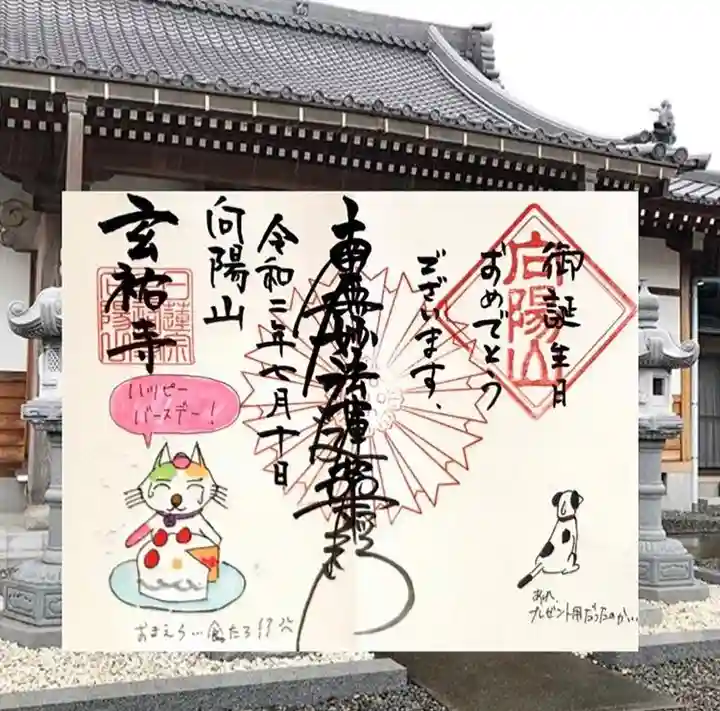 御誕生日
おめでとう
ございます、
南無妙法蓮華経
令和二年七月十日
向陽山
玄祐寺
向陽山
ハッピー
バースデー!
あれ、
プレゼント用だったのかい